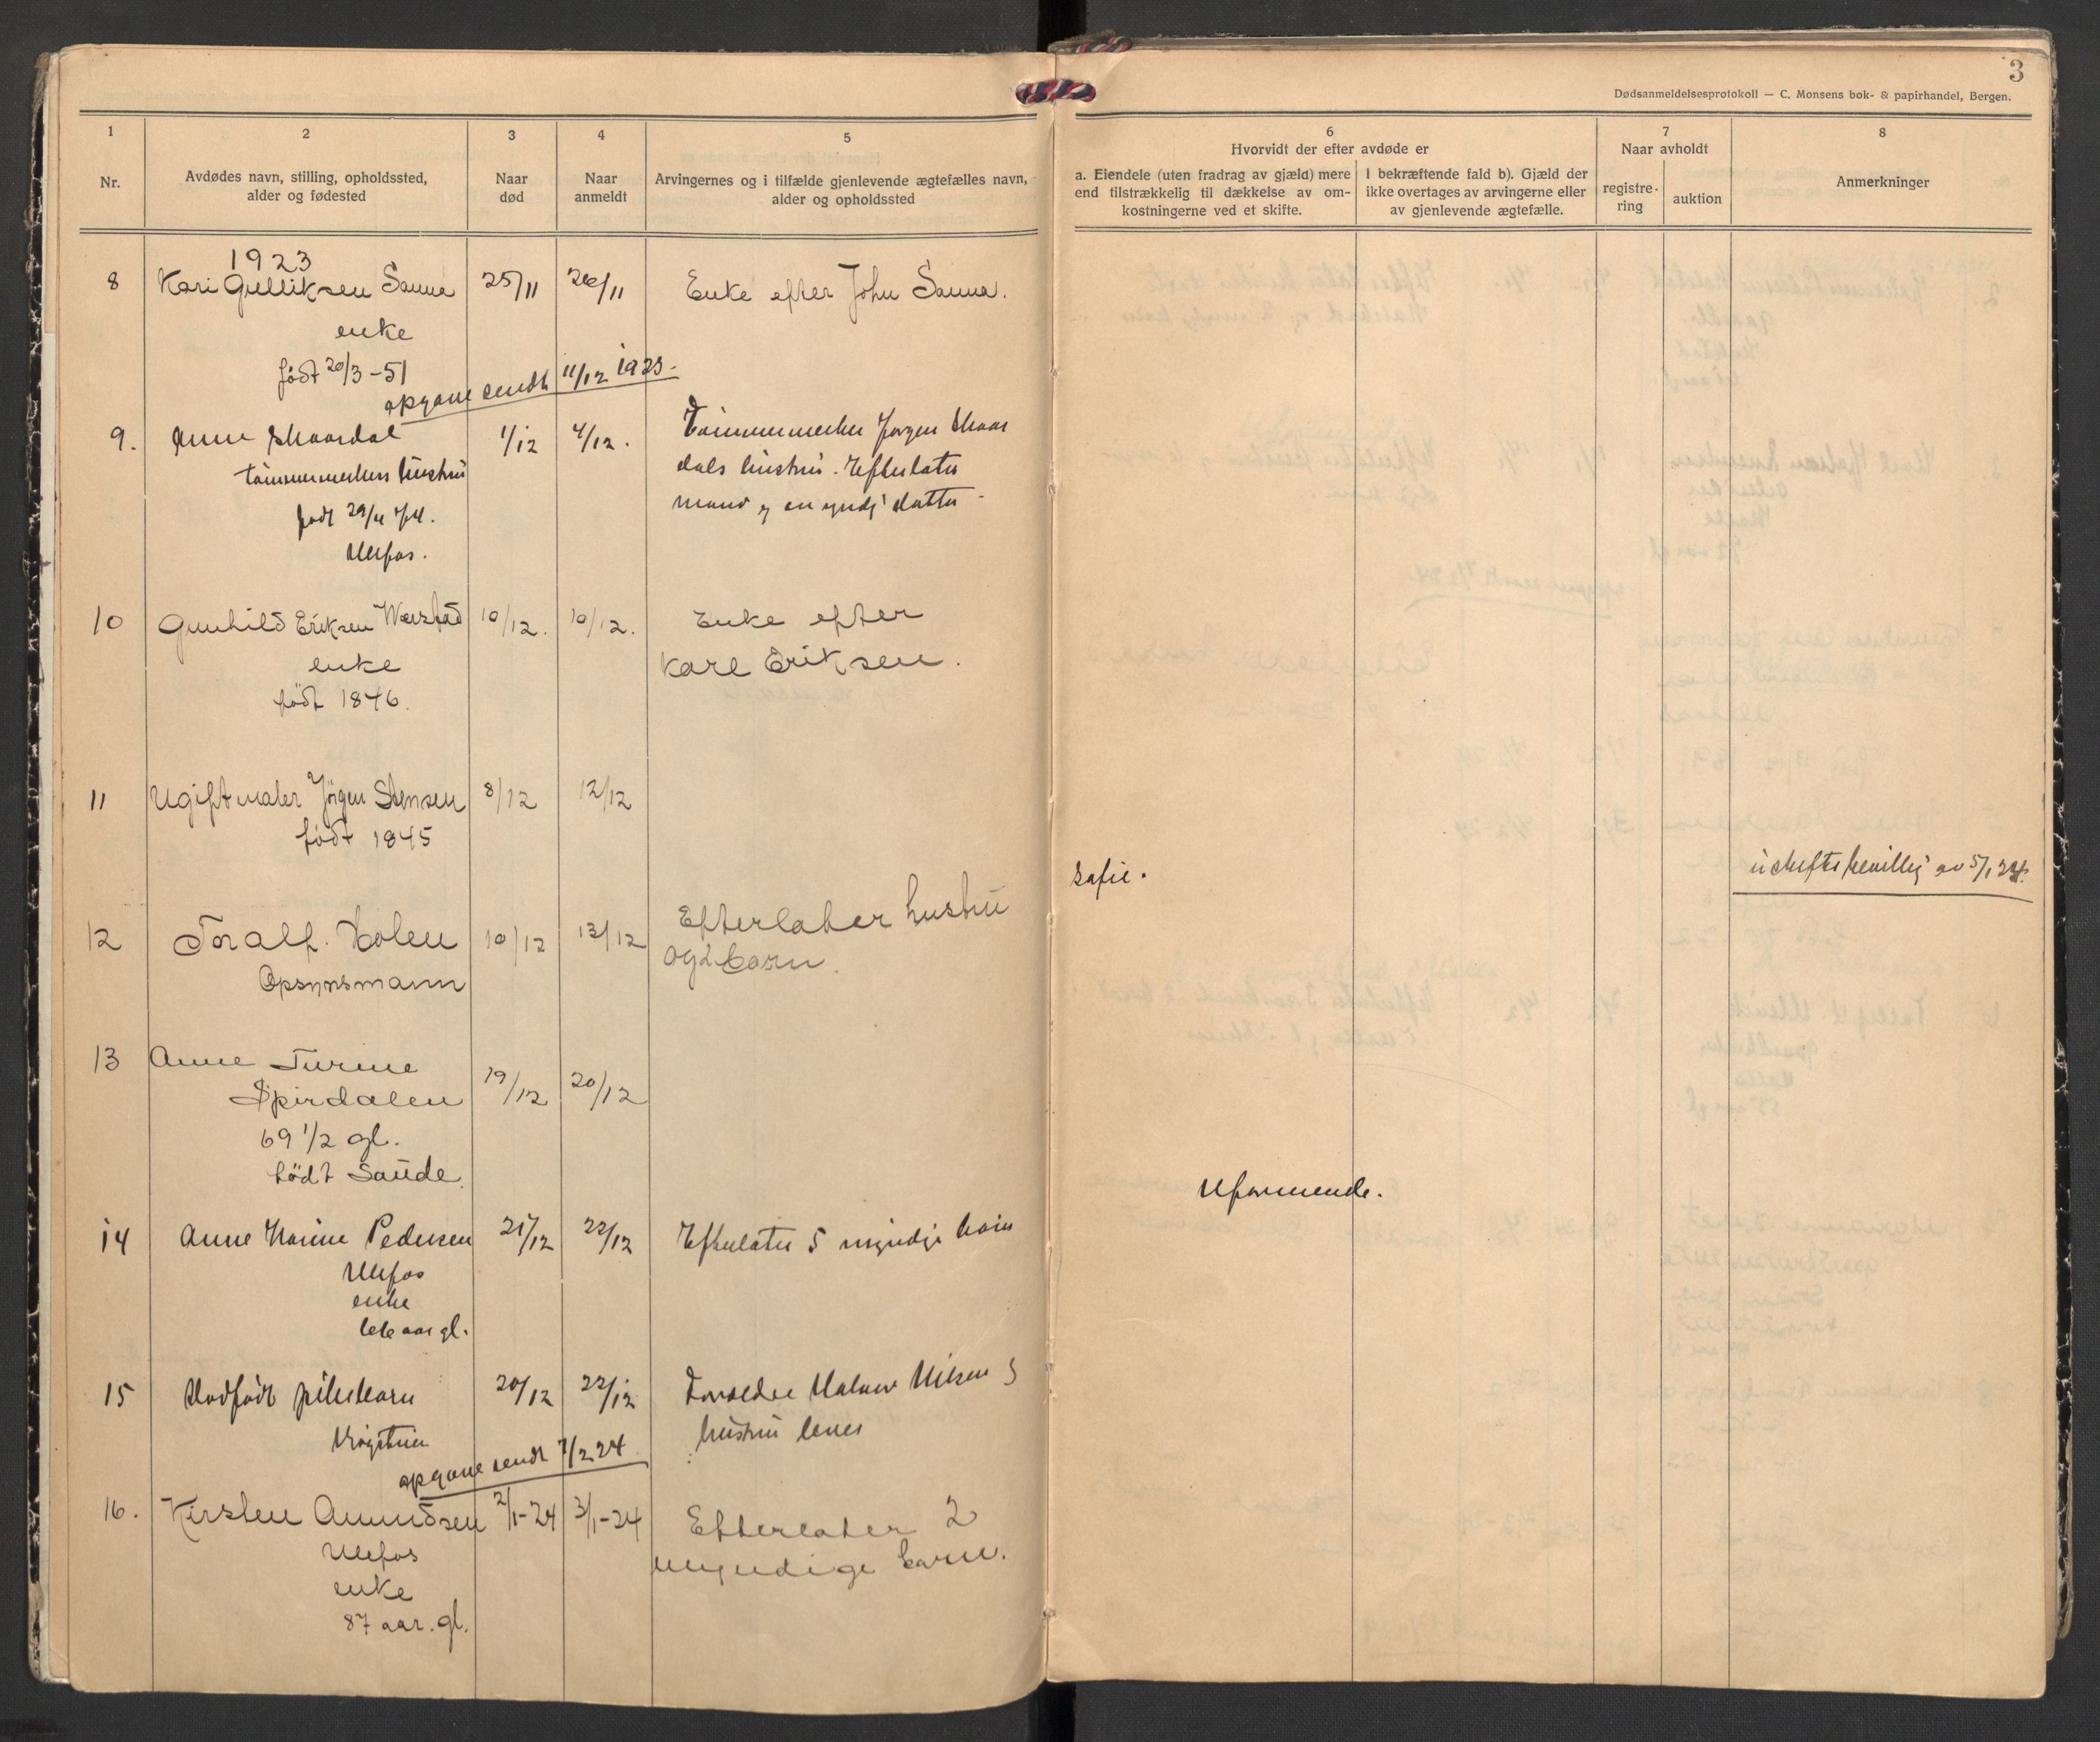 3
Dødsanmeldelsesprotokoll — C. Monsens bok- & papirhandel, Bergen.
1
2
3
4
5
6
7
8
Nr.
Avdødes navn, stilling, opholdssted,
alder og fødested
Naar
død
Naar
anmeldt
Arvingernes og i tilfælde gjenlevende ægtefælles navn,
alder og opholdssted
Hvorvidt der efter avdøde er
a. Eiendele (uten fradrag av gjæld) mere
end tilstrækkelig til dækkelse av om-
kostningerne ved et skifte.
I bekræftende fald b). Gjæld der
ikke overtages av arvingerne eller
av gjenlevende ægtefælle.
Naar avholdt
registre-
ring
auktion
Anmerkninger
1923
8 Kari Gulliksen Sanna 25/11 26/11 Enke efter John Sanna.
enke
født 20/3-51
opgave sendt 11/12 1923.
9. Anne Skaardal 1/12 4/12. Tømmermerker Jørgen Skaar
tømmermerkers hustru dals hustru. Efterlater
født 29/4 mand og en datter
Ulefos.
10 Gunhild Eriksen Værstad 10/12. 10/12. Enke efter
enke Karl Eriksen.
født 1846.
11 Ugift maler Jörgen Stensen 8/12 12/12
födt 1845
Safir. uskiftebevillig av 5/1 24.
12 Toralf. Holen 10/12 13/12 Efterlater hustru
Opsynsmann og 2 barn.
13 Anne Turine 19/12 20/12
Spirdalen
69 1/2 gl.
födt Saude.
Uformuende.
14 Anne Marine Pedersen 21/12 22/12 Efterlater 5 myndige barn
Ulefos
enke
66 aar gl.
15 Dødfødt pikebarn 20/12 22/12 Forældre Halvor Nilsen &
hustru lever
opgave sendt 7/2 24
16. Kirsten Amundsen 2/1-24 3/1-24 Efterlater 2
Ulefos myndige barn.
enke
87 aar. gl.